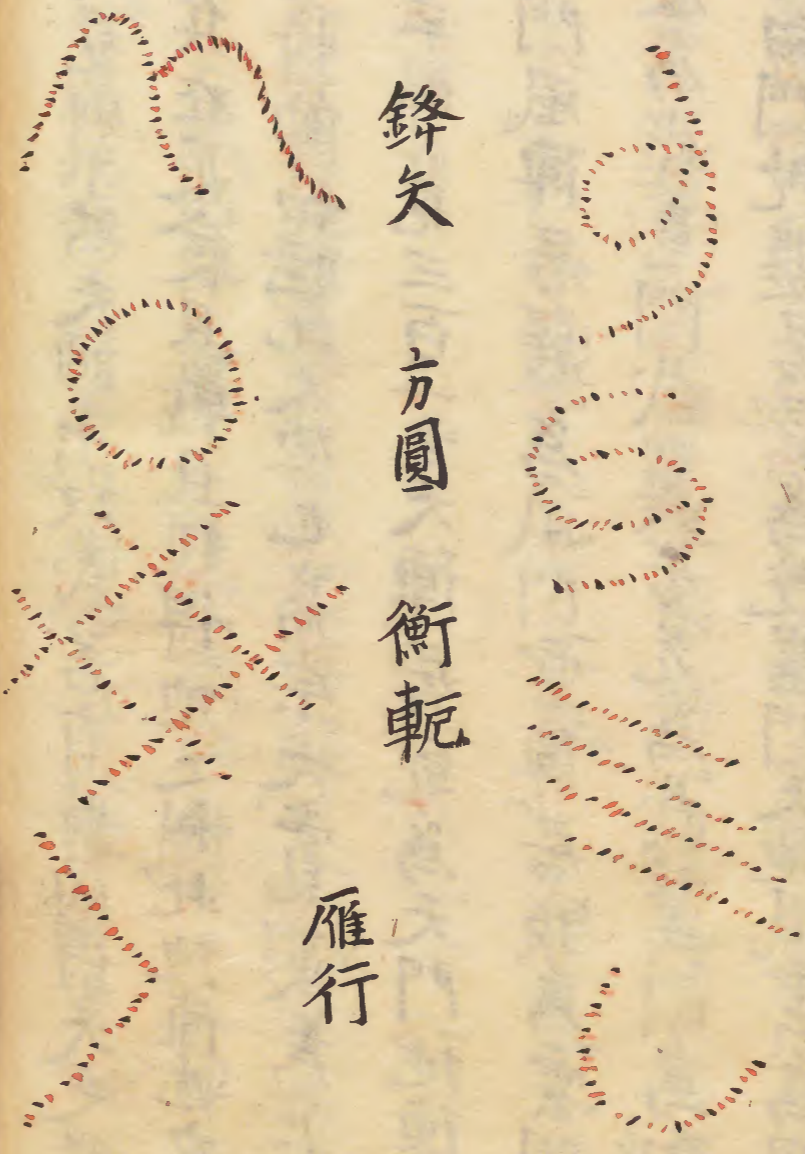 鋒矢
方圓
衡軛
雁行